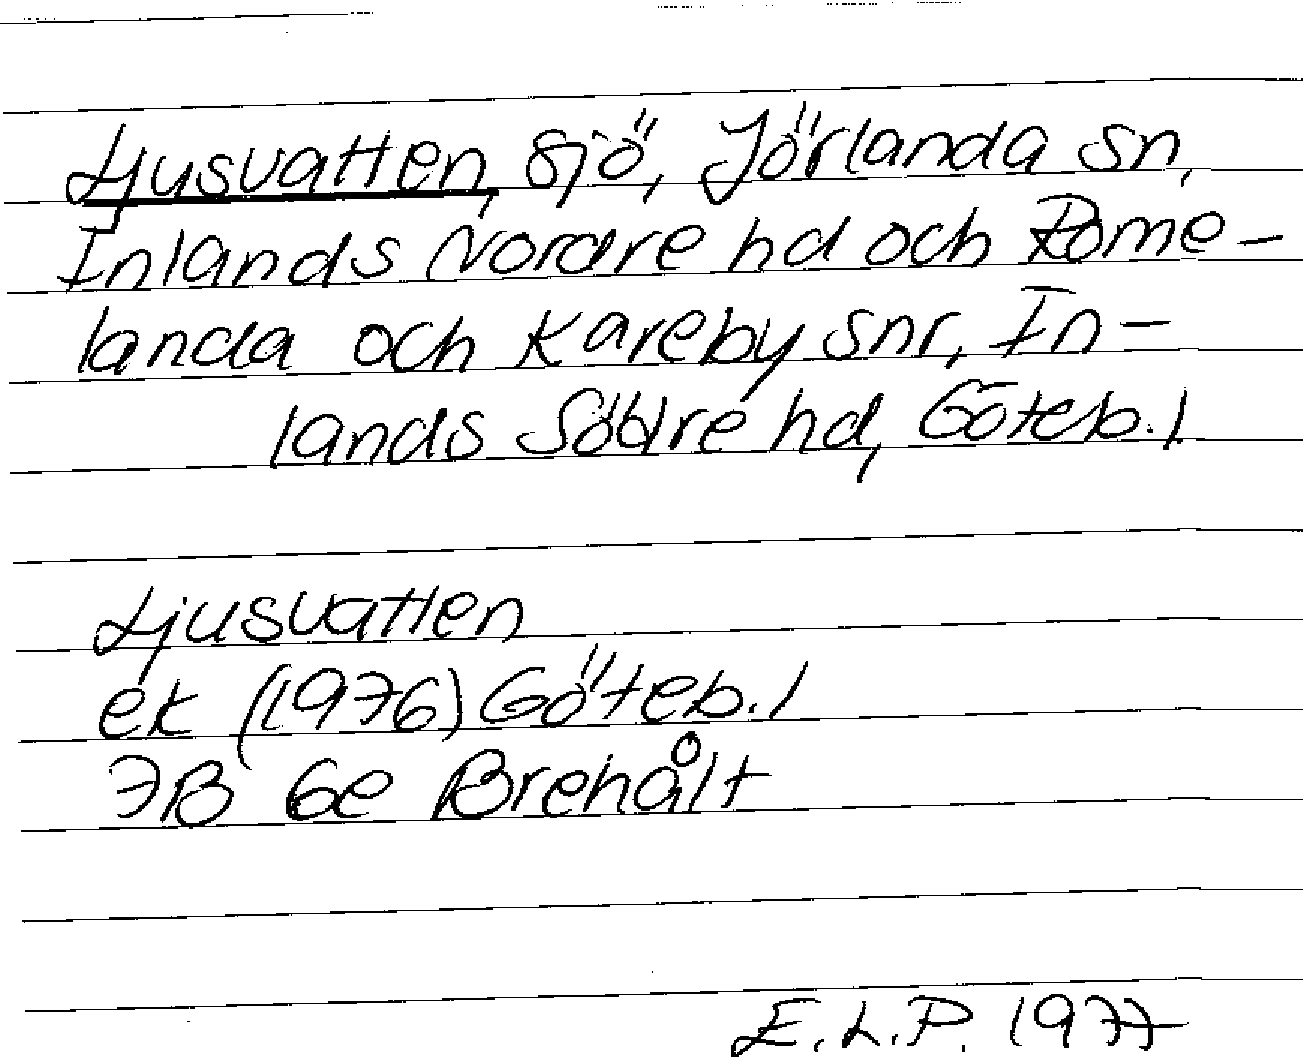 Ljusvatten, sjö, Jörlanda sn,
Inlands Nordre hd och Rome-
landa och Kareby snr, In-
lands Södre hd, Göteb. l
Ljusvatten
ek (1976) Göteb. l
7B 6e Brehålt
E.L.P. 1977